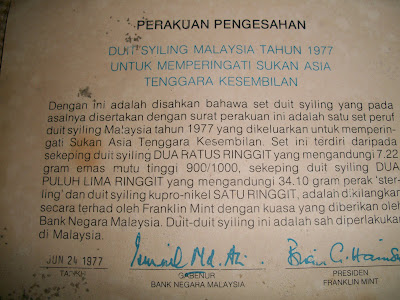 PERAKUAN PENGESAHAN
DUIT SYILING MALAYSIA TAHUN 1977
UNTUK MEMPERINGATI SUKAN ASIA
TENGGARA KESEMBILAN
Dengan ini adalah disahkan bahawa set duit syiling yang pada
asalnya disertakan dengan surat perakuan ini adalah satu set peruf
duit syiling Malaysia tahun 1977 yang dikeluarkan untuk memperin-
gati Sukan Asia Tenggara Kesembilan. Set ini terdiri daripada
sekeping duit syiling DUA RATUS RINGGIT yang mengandungi 7.22
gram emas mutu tinggi 900/1000, sekeping duit syiling DUA
PULUH LIMA RINGGIT yang mengandungi 34.10 gram perak 'ster-
ling' dan duit syiling kupro-nikel SATU RINGGIT, adalah dikilangkan
secara terhad oleh Franklin Mint dengan kuasa yang diberikan oleh
Bank Negara Malaysia. Duit-duit syiling ini adalah sah diperlakukan
di Malaysia.
JUN 24 1977
TARIKH
Ismail Md. Ali
GABENUR
BANK NEGARA MALAYSIA
PRESIDEN
FRANKLIN MINT